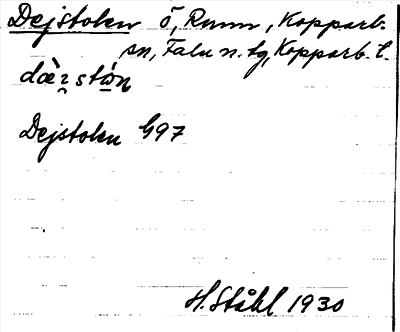 Dejstolen Ö, Runn, Kopparb.
sn, Falu n. tg, Kopparb. l.
Dejstolen G97
H. Ståhl 1930